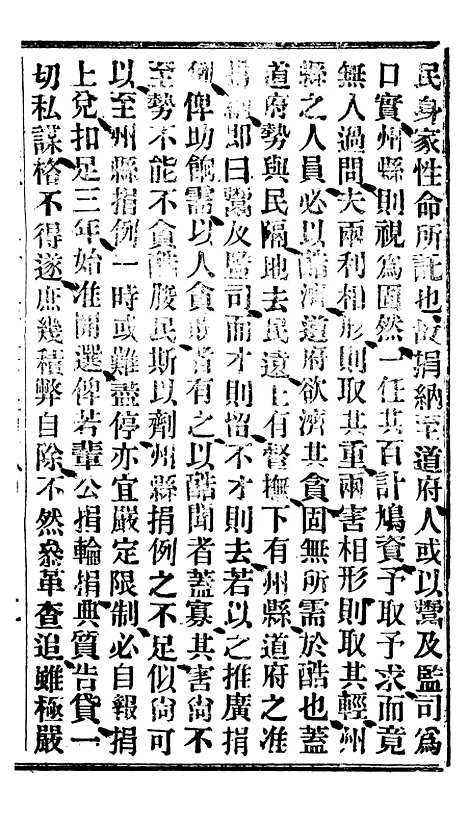 民身家性命所託也故捐納至道府人或以鬻及監司爲
口實州縣則視爲固然一任其百計鳩資予取予求而竟
無人過問夫兩利相形則取其重兩害相形則取其輕州
縣之人員必以酷濟道府欲濟其貪固無所需於酷也蓋
道府勢與民隔地去民遠上有督撫下有州縣道府之准
捐納卽曰鬻及監司而才則留不才則去若以之推廣捐
例俾助餉需以人貪聞者有之以酷聞者蓋寡其害尙不
至勢不能不貪酷朘民斯以劑州縣捐例之不足似尙可
以至州縣捐例一時或難盡停亦宜嚴定限制必自報捐
上兌扣足三年始准開選俾若輩公捐輪捐典質告貸一
切私謀格不得遂庶幾積弊自除不然叅革查追雖極嚴